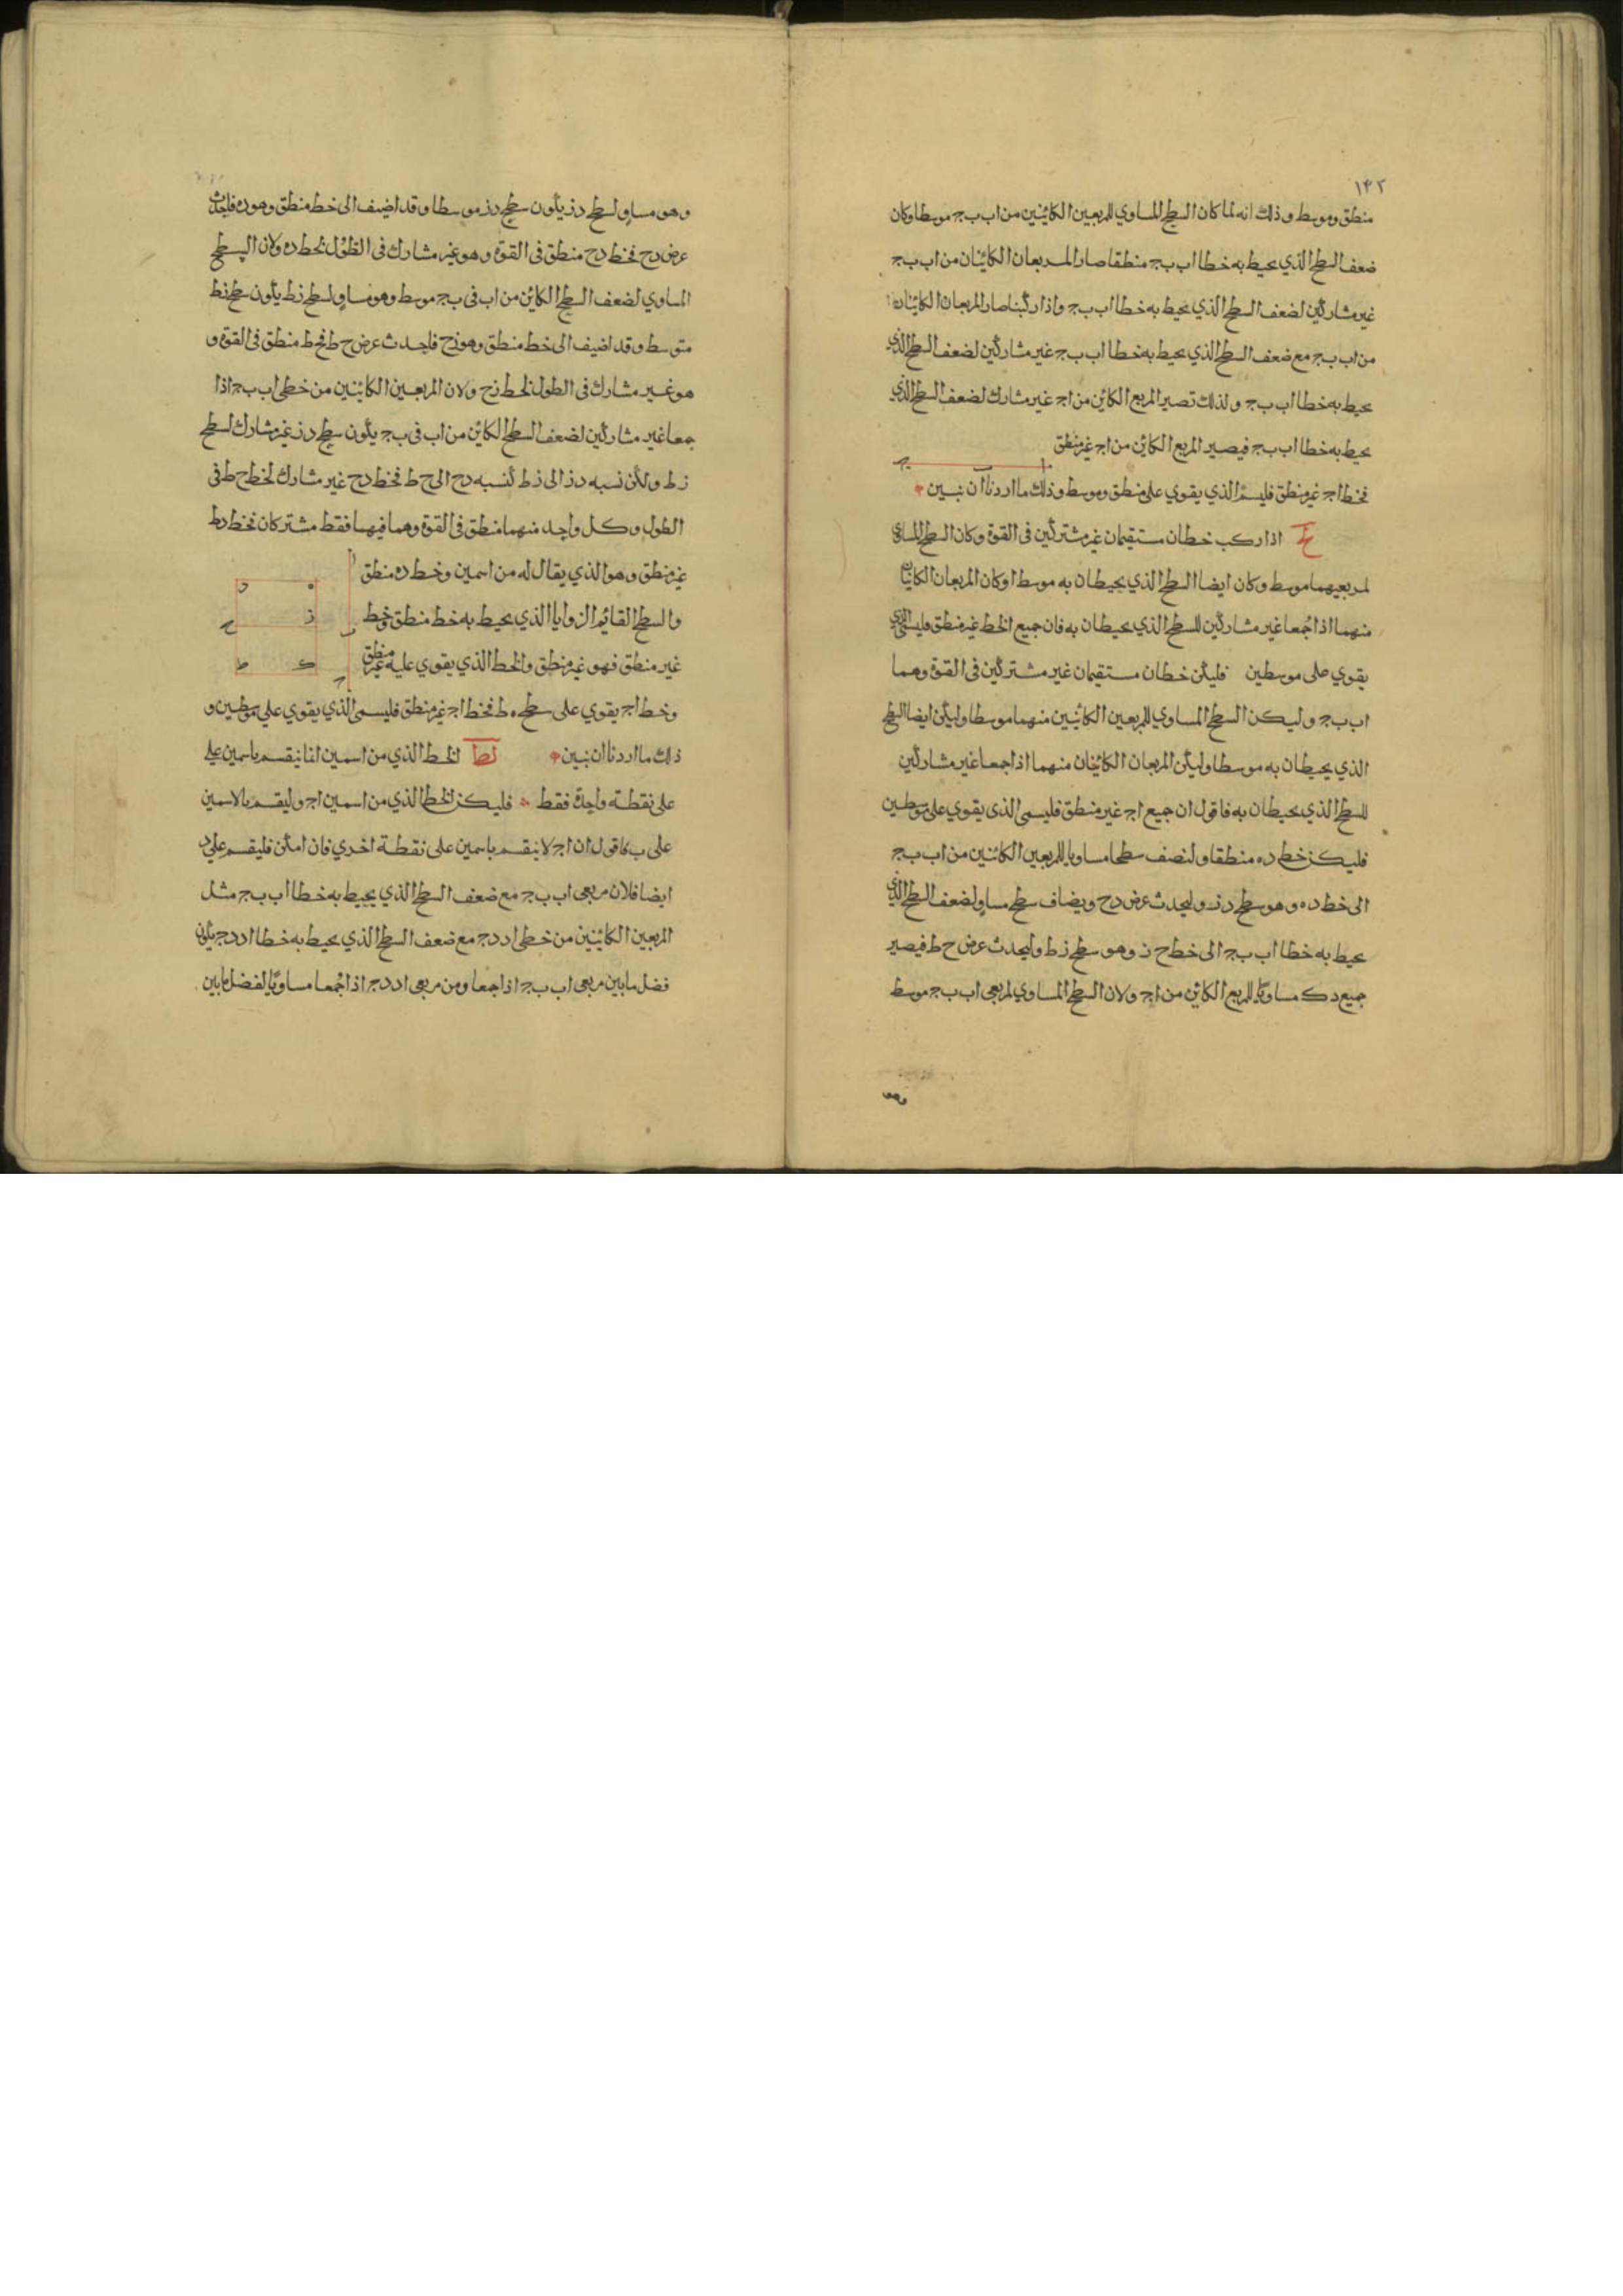 ١٤٢
منطق وموسط وذلك انه لما كان السطح المساوي للمربعين الكائنين من اب بج موسطا وكان
ضعف السطح الذي يحيط به خطا اب بج منطقا صار المربعان الكائنان من اب بج
غير مشاركين لضعف السطح الذي يحيط به خطا اب بج واذا ركبنا صار المربعان الكائنان
من اب بج مع ضعف السطح الذي يحيط به خطا اب بج غير مشاركين لضعف السطح الذي
يحيط به خطا اب بج ولذلك تصير المربع الكائن من اج غير مشارك لضعف السطح الذي
يحيط به خطا اب بج فيصير المربع الكائن من اج غير منطق
ا ب ج
فخط اج غير منطق فليسم الذي يقوي على منطق وموسط وذلك ما اردنا ان نبين
لح اذا ركب خطان مستقيمان غير مشتركين في القوة وكان السطح المساوي
لمربعيهما موسط وكان ايضا السطح الذي يحيطان به موسطا وكان المربعان الكائنان
منهما اذا جُمعا غير مشاركين للسطح الذي يحيطان به فان جميع الخط غير منطق فليسمى الذي
يقوي على موسطين فليكن خطان مستقيمان غير مشتركين في القوة وهما
اب بج وليكن السطح المساوي للمربعين الكائنين منهما موسطا وليكن ايضا السطح
الذي يحيطان به موسطا وليكن المربعان الكائنان منهما اذا جمعا غير مشاركين
للسطح الذي يحيطان به فاقول ان جميع اج غير منطق فليسمى الذي يقوي على موسطين
فليكن خط ده منطقا ولنضف سطحا مساويا للمربعين الكائنين من اب بج
الى خط ده وهو سطح دز وليحدث عرض دح ويضاف سطح مساو لضعف السطح الذي
يحيط به خطا اب بج الى خط ح ز وهو سطح زط وليحدث عرض ح ط فيصير
جميع دك مساويًا للمربع الكائن من اج ولان السطح المساوي لمربعي اب بج موسط
وهو
وهو مساو لسطح دز يكون سطح دز موسطا وقد اضيف الى خط منطق وهو ده فليحدث
عرض دح فخط دح منطق في القوة وهو غير مشارك في الطول لخط ده ولان السطح
المساوي لضعف السطح الكائن من اب في بج موسط وهو مساو لسطح زط يكون سطح زط
متوسط وقد اضيف الى خط منطق وهو زح فليحدث عرض ح ط فحط منطق في القوة و
هو غير مشارك في الطول لخط زح ولان المربعين الكائنين من خطي اب بج اذا
جمعا غير مشاركين لضعف السطح الكائن من اب في بج يكون سطح دز غير مشارك لسطح
زط ولكن نسبه دز الى زط كنسبه دح الى ح ط فخط دح غير مشارك لخط ح ط في
الطول وكل واحد منهما منطق في القوة وهما فيهما فقط مشتركان فخط دط
غير منطق وهو الذي يقال له من اسمين وخط ده منطق
والسطح القائم الزوايا الذي يحيط به خط منطق وخط
غير منطق فهو غير منطق والخط الذي يقوي عليه غير منطق
ا ب ج
د ه
ز ح
ك ط
وخط اج يقوي على سطح ه ط فخط اج غير منطق فليسمى الذي يقوي على موسطين و
ذلك ما اردنا ان نبين لط الخط الذي من اسمين انما ينقسم باسمين على
على نقطة واحدة فقط فليكن الخط الذي من اسمين اج وليقسم بالاسمين
على ب فاقول ان اج لا ينقسم باسمين على نقطة اخري فان امكن فليقسم على د
ايضا فلان مربعي اب بج مع ضعف السطح الذي يحيط به خطا اب بج مثل
المربعين الكائنين من خطي اد دج مع ضعف السطح الذي يحيط به خطا اد دج يكون
فضل ما بين مربعي اب بج اذا جمعا ومن مربعي اد دج اذا جُمعا مساويًا لفضل ما بين